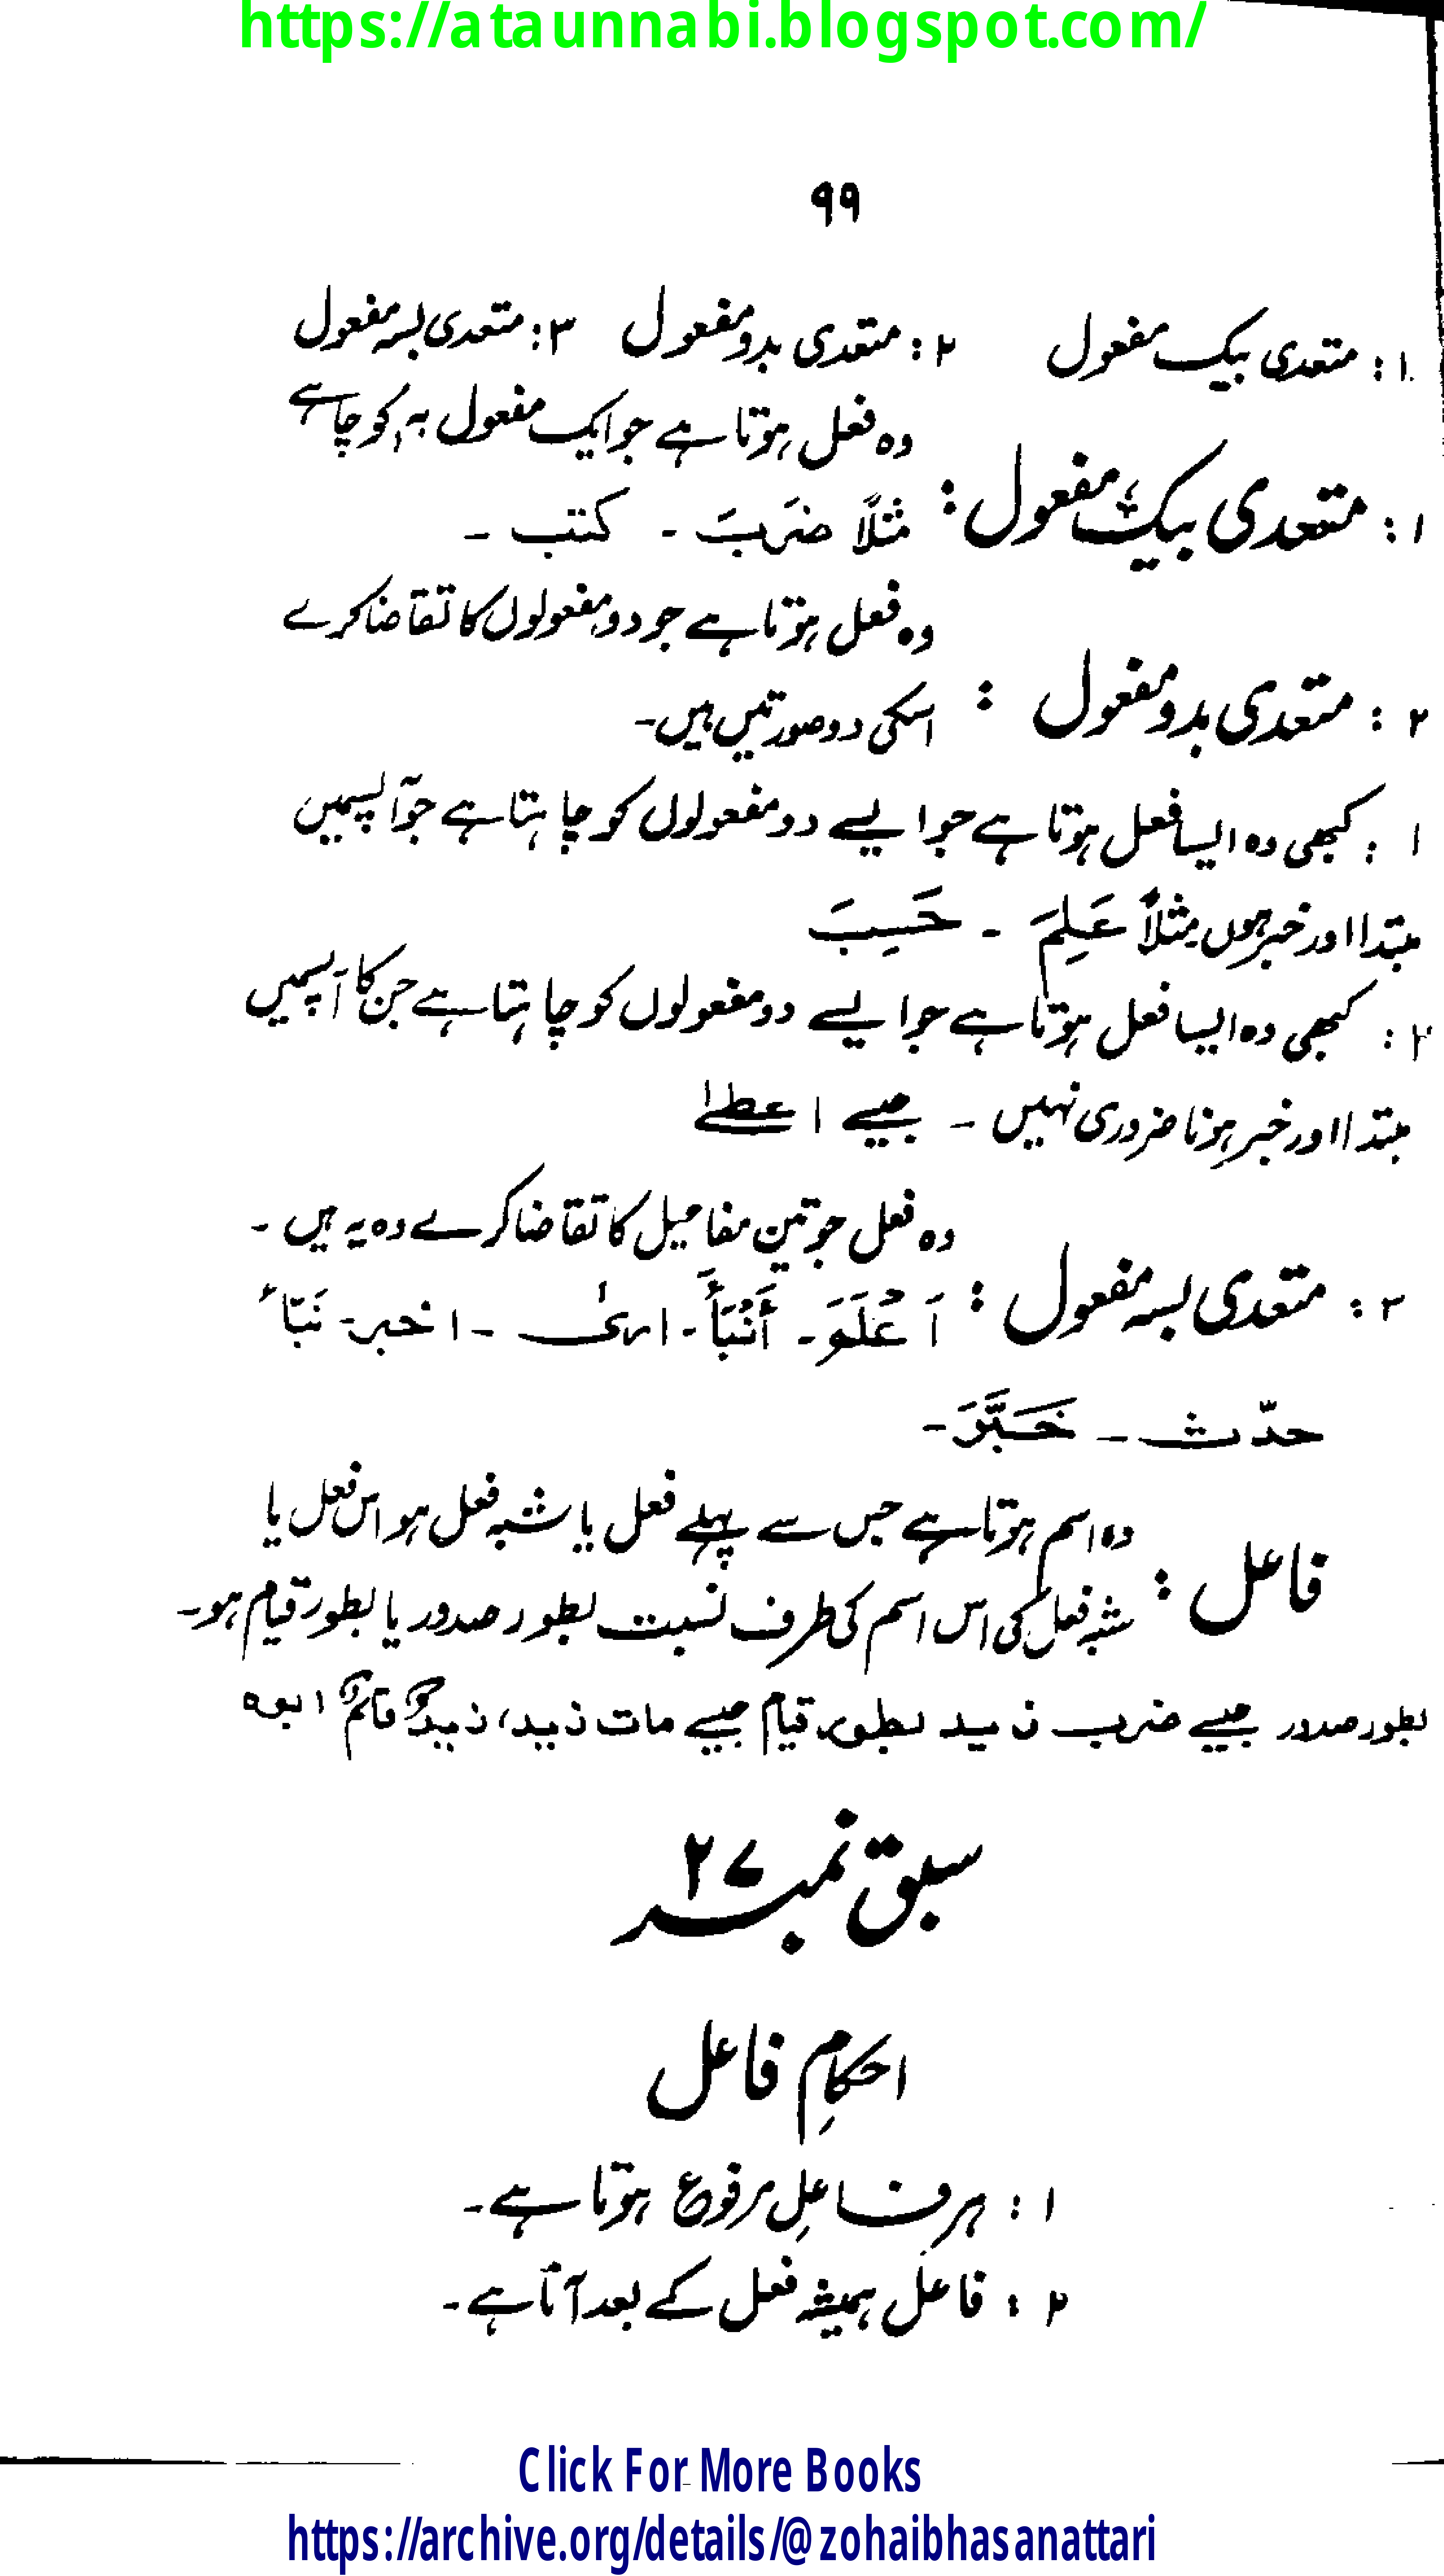 https://ataunnabi.blogspot.com/
۹۹
۱: متعدی بیک مفعول ۲: متعدی بدو مفعول ۳: متعدی بسہ مفعول
۱: متعدی بیک مفعول: وہ فعل ہوتا ہے جو ایک مفعول بہٖ کو چاہے
مثلاً ضَرَبَ ۔ کتب ۔
۲: متعدی بدو مفعول: وہ فعل ہوتا ہے جو دو مفعولوں کا تقاضا کرے
اسکی دو صورتیں ہیں۔
۱: کبھی وہ ایسا فعل ہوتا ہے جو ایسے دو مفعولوں کو چاہتا ہے جو آپسمیں
مبتدا اور خبر ہوں مثلاً عَلِمَ ۔ حَسِبَ
۲: کبھی وہ ایسا فعل ہوتا ہے جو ایسے دو مفعولوں کو چاہتا ہے جن کا آپسمیں
مبتدا اور خبر ہونا ضروری نہیں ۔ جیسے اعطےٰ
۳: متعدی بسہ مفعول: وہ فعل جو تین مفاعیل کا تقاضا کرے وہ یہ ہیں ۔
اَعْلَمَ ۔ أَنْبَأَ ۔ اریٰ ۔ اخبر ۔ نَبّأَ
حدّث ۔ خَبَّرَ ۔
فاعل: وہ اسم ہوتا ہے جس سے پہلے فعل یا شبہ فعل ہو اس فعل یا
شبہ فعل کی اس اسم کی طرف نسبت بطور صدور یا بطور قیام ہو۔
بطور صدور جیسے ضرب زید بطور قیام جیسے مات زید، زید قائم ابوہ
سبق نمبر ۲۷
احکامِ فاعل
۱: ہر فاعل مرفوع ہوتا ہے۔
۲: فاعل ہمیشہ فعل کے بعد آتا ہے۔
Click For More Books
https://archive.org/details/@zohaibhasanattari